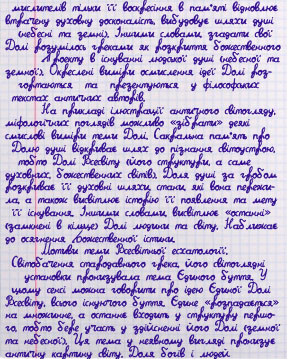 мислителів тільки її воскресіння в пам'яті відновлює
втрачену духовну досконалість, вибудовує шляхи душі
(небесні та земні). Іншими словами, згадати свої
Долі розумілось греками як розкриття божественного
Проекту в існуванні людської душі (небесної та
земної). Окреслені виміри осмислення ідеї Долі роз-
гортаються та презентуються у філософських
текстах античних авторів.
На прикладі ілюстрації античного світогляду,
міфологічних поглядів можливо «зібрати» деякі
смислові виміри теми Долі. Сакральна пам'ять про
Долю душі відкриває шлях до пізнання світоустрою,
тобто Долі Всесвіту (його структури, а саме
духовних, божественних світів). Доля душі за гробом
розкриває її духовні шляхи, стани, які вона пережи-
ла, а також висвітлює історію її появлення та мету
її існування. Іншими словами, висвітлює «останні»
(замкнені в кільце) Долі людини та світу. Наближає
до осягнення божественної істини.
Мотиви теми Всесвітньої есхатології.
Світобачення стародавнього грека, його світоглядні
установки пронизувала тема Єдиного буття. У
цьому сенсі можна говорити про ідею Єдиної Долі
Всесвіту, всього існуючого буття. Єдине «розпадається»
на множинне, а останнє входить у структуру першо-
го, тобто бере участь у здійсненні його Долі (земної
та небесної). Ця тема у неявному вигляді пронизує
античну картину світу. Доля богів і людей